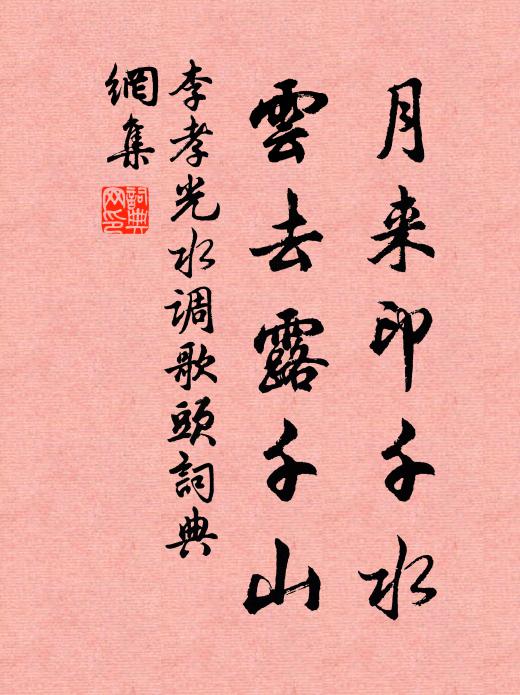 月来印千水
雲去露千山
李孝光水调歌頭詞典
網集
詞典
网印